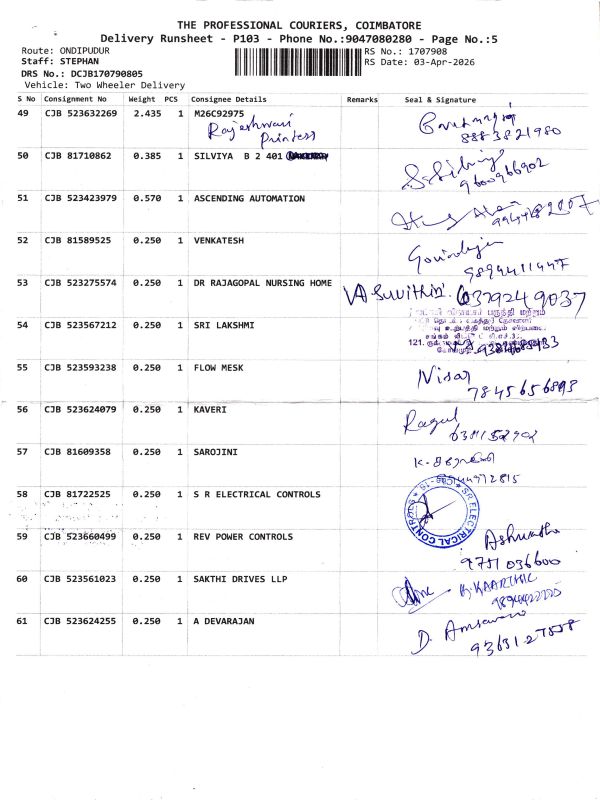 THE PROFESSIONAL COURIERS, COIMBATORE
Delivery Runsheet - P103 - Phone No.:9047080280 - Page No.:5
Route: ONDIPUDUR
RS No.: 1707908
Staff: STEPHAN
RS Date: 03-Apr-2026
DRS No.: DCJB170790805
Vehicle: Two Wheeler Delivery
S No Consignment No Weight PCS Consignee Details Remarks Seal & Signature
49 CJB 523632269 2.435 1 M26C92975
Rajeshwari
Printers
8883821980
50 CJB 81710862 0.385 1 SILVIYA B 2 401
9600966902
51 CJB 523423979 0.570 1 ASCENDING AUTOMATION
52 CJB 81589525 0.250 1 VENKATESH
9894411447
53 CJB 523275574 0.250 1 DR RAJAGOPAL NURSING HOME
Suvithin 6379249037
54 CJB 523567212 0.250 1 SRI LAKSHMI
121.
55 CJB 523593238 0.250 1 FLOW MESK
Nisar
7845656893
56 CJB 523624079 0.250 1 KAVERI
Ragul
57 CJB 81609358 0.250 1 SAROJINI
58 CJB 81722525 0.250 1 S R ELECTRICAL CONTROLS
SR ELECTRICAL CONTROLS
59 CJB 523660499 0.250 1 REV POWER CONTROLS
Ashwatha
9751036600
60 CJB 523561023 0.250 1 SAKTHI DRIVES LLP
KAARTHIC
61 CJB 523624255 0.250 1 A DEVARAJAN
D.